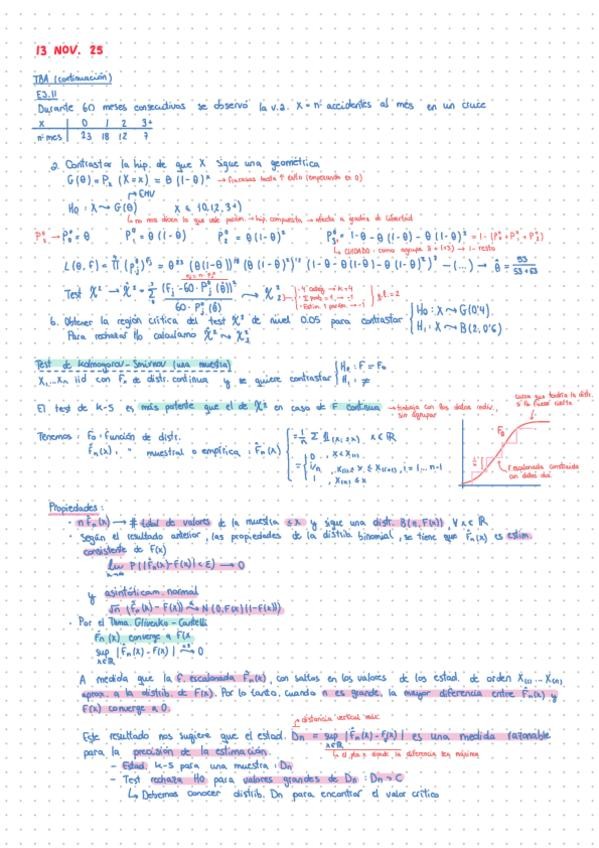 13 NOV. 25
TBA (continuación)
EJ.11
Durante 60 meses consecutivos se observó la v.a. X = nº accidentes al mes en un cruce
X | 0 1 2 3+
nº mes | 23 18 12 7
a. Contrastar la hip. de que X sigue una geométrica
G(θ) = P_θ (X = x) = θ (1-θ)^x → fracasos hasta 1º éxito (empezando en 0)
→ EMV
H₀: X ~ G(θ) X ∈ {0,1,2,3+}
↳ no nos dicen lo que vale → hip. compuesta → afecta a grados de libertad
P₀⁰ → P₀⁰ = θ P₁⁰ = θ(1-θ) P₂⁰ = θ(1-θ)² P₃₊⁰ = 1-θ - θ(1-θ) - θ(1-θ)² = 1-(P₀⁰+P₁⁰+P₂⁰)
↳ CUIDADO: como agrupa 3 (+3) → 1- resto
L(θ, F) = ∏ (P_j⁰)^{F_j} = θ²³ (θ(1-θ))¹⁸ (θ(1-θ)²)¹² (1-θ-θ(1-θ)-θ(1-θ)²)⁷ → (...) → θ̂ = 53/(53+63)
Test χ² → χ̂² = Σ (F_j - 60·P_j⁰(θ̂))² / 60·P_j⁰(θ̂) ~ χ²₂
· 4 categ → k=4
· Σ prob = 1 → -1
· Estim. 1 parám → -1
g.l. = 2
b. Obtener la región crítica del test χ² de nivel 0.05 para contrastar { H₀: X ~ G(0'4)
H₁: X ~ B(2, 0'6)
Para rechazar H₀ calculamos χ̂² ~ χ²₃
Test de Kolmogorov-Smirnov (una muestra)
X₁,...Xn iid con Fn de distr. continua y se quiere contrastar { H₀: F = F₀
H₁: ≠
El test de K-S es más potente que el de χ² en caso de F continua → trabaja con los datos indiv. sin agrupar
curva que tendría la distr. si H₀ fuese cierta
Tenemos: F₀: función de distr.
F̂n(x): " muestral o empírica: F̂n(x) { = 1/n Σ 𝟙(xᵢ ≤ x), x ∈ ℝ
= { 0 , x < X₍₁₎
i/n , X₍ᵢ₎ ≤ x ≤ X₍ᵢ₊₁₎, i = 1,... n-1
1 , X₍ₙ₎ ≤ x
F₀
F. escalonada construida con datos
Propiedades:
· n F̂n(x) → # total de valores de la muestra ≤ x y sigue una distr. B(n, F(x)), ∀ x ∈ ℝ
· Según el resultado anterior, las propiedades de la distrib. binomial, se tiene que F̂n(x) es estim.
consistente de F(x)
lim P(|F̂n(x)-F(x)| < ε) → 0
n→∞
y asintóticam. normal
√n (F̂n(x) - F(x)) → N(0, F(x)(1-F(x)))
· Por el Tma. Glivenko-Cantelli
F̂n(x) converge a F(x
sup |F̂n(x) - F(x)| → 0
x∈ℝ
A medida que la F. escalonada F̂n(x), con saltos en los valores de los estad. de orden X₍₁₎...X₍ₙ₎,
aprox. a la distrib. de F(x). Por lo tanto, cuando n es grande, la mayor diferencia entre F̂n(x) y
F(x) converge a 0.
↗ distancia vertical máx
Este resultado nos sugiere que el estad. Dn = sup |F̂n(x) - F₀(x)| es una medida razonable
x∈ℝ
↳ el pto x donde la diferencia sea máxima
para la precisión de la estimación.
- Estad. K-S para una muestra: Dn
- Test rechaza H₀ para valores grandes de Dn: Dn > C
↳ Debemos conocer distrib. Dn para encontrar el valor crítico